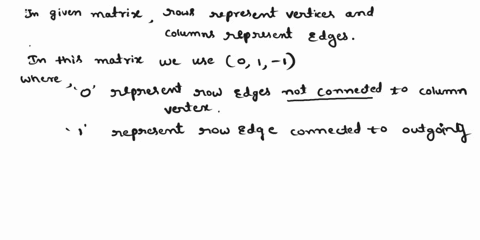 In given matrix, rows represent vertices and
columns represent Edges.
In this matrix we use (0, 1, -1)
where,
'0' represent row Edges not connected to column
vertex.
'1' represent row Edge connected to outgoing